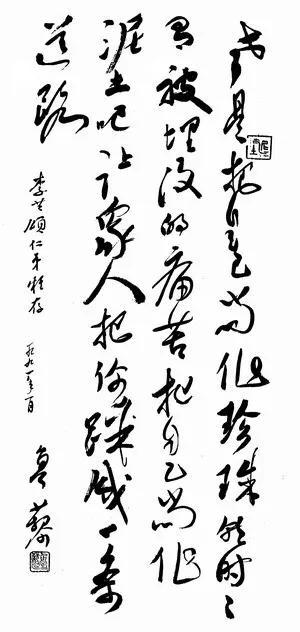 老是把自己当作珍珠就时时
有被埋没的痛苦把自己当作
泥土吧让眾人把你踩成一条
道路
仁弟雅存
鲁藜